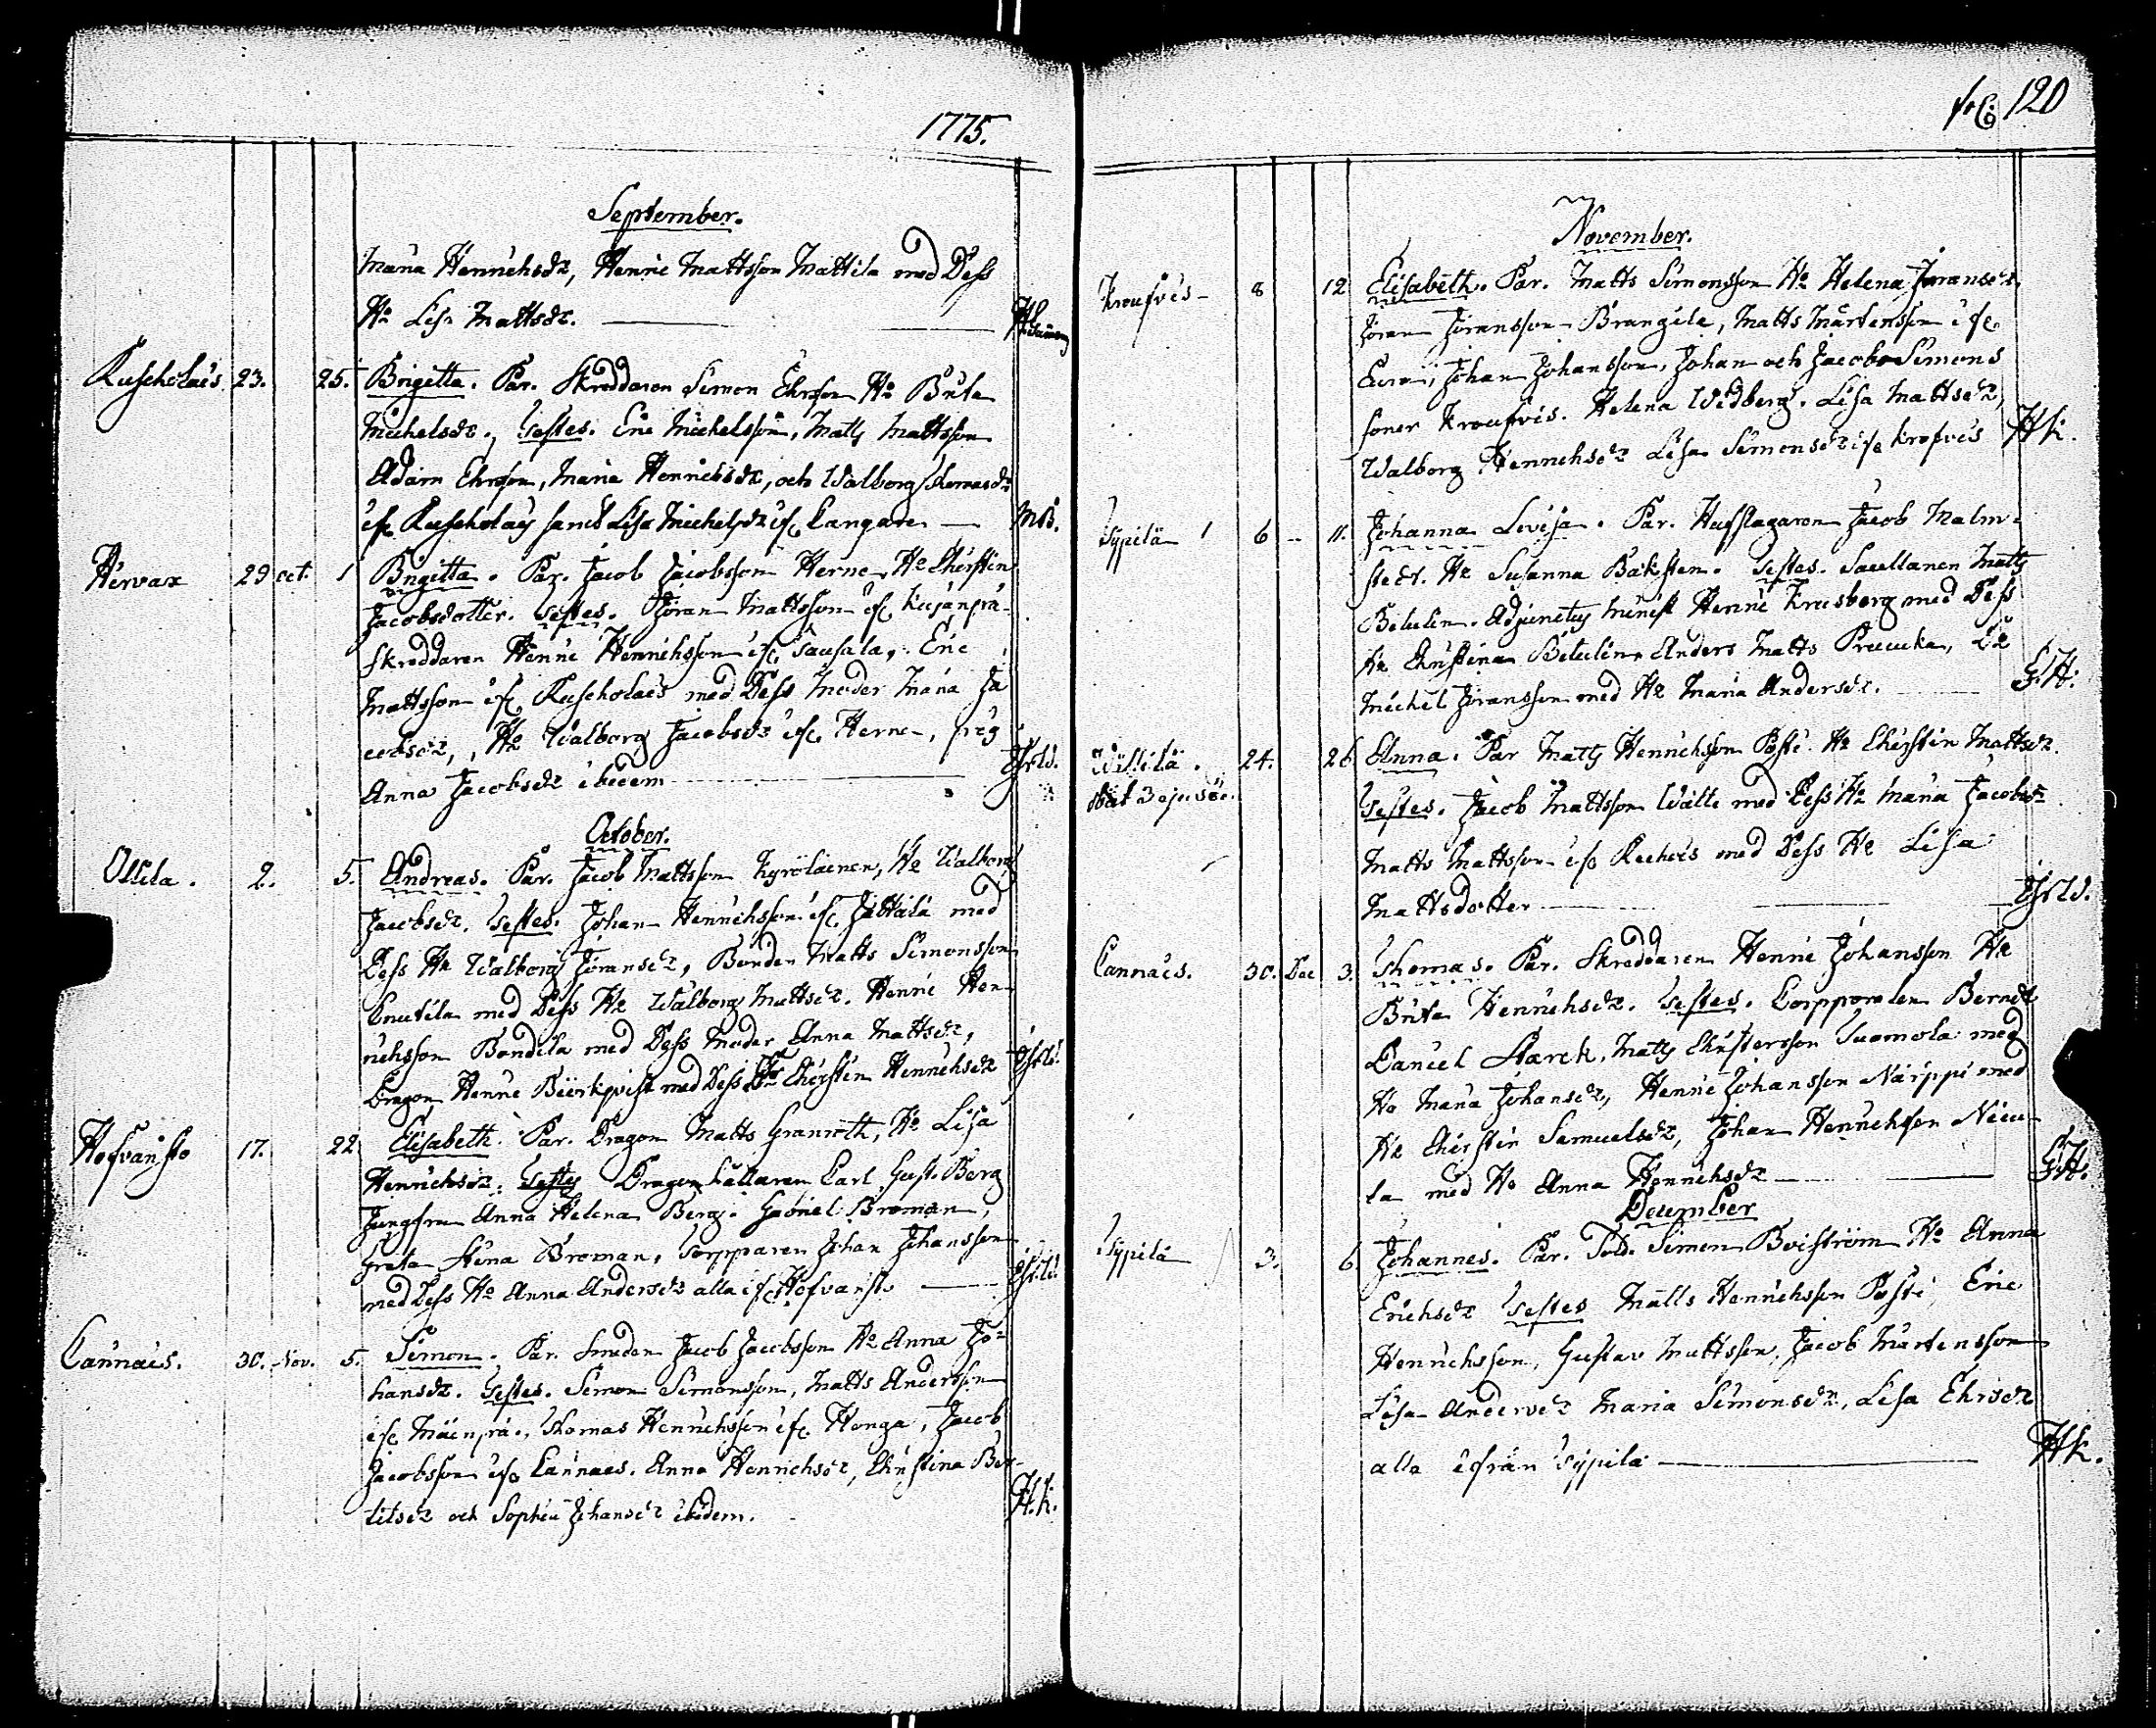 1775.
September.
Maria Henrichsdr, Henric Mattsson Mattila med Dess
Hu Lisa Mattsdr.
Kuscholais 23. 25. Brigitta. Par. Skreddaren Simon Ehrsson Hu Brita
Michelsdr., Testes. Eric Michelsson, Matts Mattsson
Adam Ehrsson, Maria Henrichsdr, och Walborg Thomasdr
ifr. Kuscholais samt Lisa Michelsdr ifr. Cangare MB.
Hervax 29 oct. 1 Brigitta. Par. Jacob Jacobsson Herne, Hu Chirstin
Jacobsdotter. Testes. Jöran Mattsson ifr.
Skreddaren Henric Henrichsson ifr. Sausala, Eric
Mattsson ifr. Kuscholais med Dess Moder Maria Ja
cobsdr, Hu Walborg Jacobsdr ifr. Herne, pig
Anna Jacobsdr ibidem
October.
Ollila. 2. 5. Andreas. Par. Jacob Mattsson Kyröläinen, Hu Walborg
Jacobsdr. Testes. Johan Henrichsson ifr. Jättälä med
Dess Hu Walborg Jöransdr, Bonden Matts Simonsson
Cnutila med Dess Hu Walborg Mattsdr. Henric Hen
richsson Bondila med Dess Moder Anna Mattsdr,
Dragon Henric Biörkqvist med Dess Hu Chirstin Henrichsdr
Hofvansto 17. 22 Elisabeth. Par. Dragon Matts Granroth, Hu Lisa
Henrichsdr: Testes Dragon hållaren Carl Gust. Berg
Jungfru Anna Helena Berg. Gabriel Broman,
Greta Stina Broman, Torpparen Johan Johansson
med Dess Hu Anna Andersdr alla ifr. Hofvansto
Cannais. 30. Nov. 5. Simon. Par. Smeden Jacob Jacobsson Hu Anna Jo-
hansdr. Testes. Simon Simonsson, Matts Andersson
ifr. Mäenpä., Thomas Henrichsson ifr. Honga, Jacob
Jacobsson ifr. Cannais. Anna Henrichsdr, Christina Ber-
tilsdr och Sophia Johansdr ibidem. H.k.
fol: 120
November.
Kroufvis 8 12 Elisabeth. Par. Matts Simonsson Hu Helena Jöransdr.
Jöran Jöransson Brangila, Matts Mårtensson ifr.
Eura, Johan Johansson, Johan och Jacob Simons
söner Kroufvis. Helena Widberg. Lisa Mattsdr,
Walborg Henrichsdr Lisa Simonsdr ifr Krofvis Hk.
Sypilä 6 11. Johanna Lovisa. Par. Hofslagaren Jacob Malm-
stedt. Hu Susanna Bäksten. Testes. Sacellanen Matts
Betulin. Adjunctus minist Henric Krusberg med Dess
Hu Christina Betulin. Anders Matts
Michel Jöransson med Hu Maria Andersdr. G.H.
24. 26 Anna. Par Matts Henrichsson Påsti. Hu Chirstin Mattsdr.
Testes. Jacob Mattsson Wälte med Dess Hu Maria Jacobsdr
Matts Mattsson ifr med Dess Hu Lisa
Mattsdotter
Cannais. 30. Dec 3. Thomas. Par. Skreddaren Henric Johansson Hu
Brita Henrichsdr. Testes. Corpporalen Berndt
Daniel Starck, Matts Christersson Tuomola med
Hu Maria Johansdr, Henric Johansson Närppi med
Hu Chirstin Samuelsdr, Johan Henrichsson Nicu
la med Hu Anna Henrichsdr G.H.
December
Sypilä 3. 6. Johannes. Par. Sold. Simon Boiström Hu Anna
Erichsdr Testes Matts Henrichsson Påsti, Eric
Henrichsson, Gustav Mattsson, Jacob Mårtensson
Lisa Andersdr Maria Simonsdr, Lisa Ehrsdr
alla ifrån Sypilä Hk.